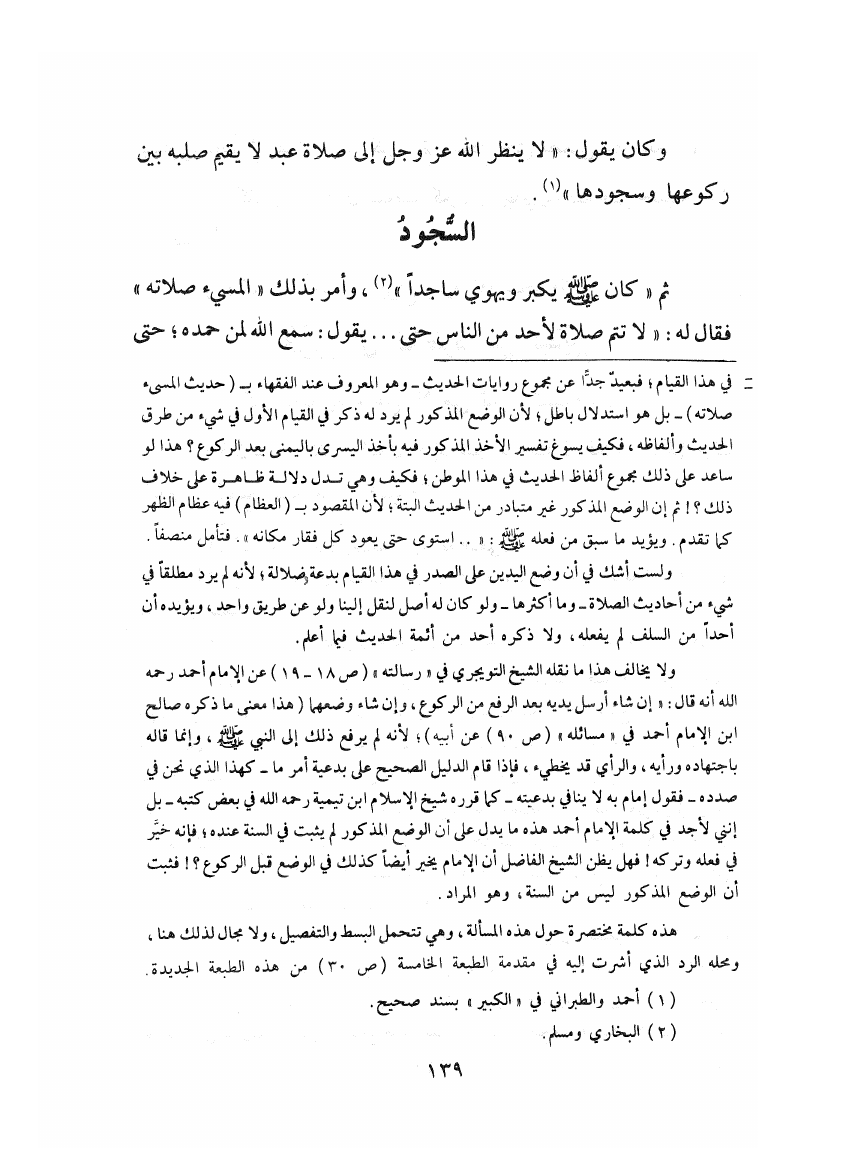 وكان يقول : « لا ينظر الله عز وجل إلى صلاة عبد لا يقيم صلبه بين
ركوعها وسجودها »(١) .
السُّجُودُ
ثم « كان ﷺ يكبر ويهوي ساجداً »(٢) ، وأمر بذلك « المسيء صلاته »
فقال له : « لا تتم صلاة لأحد من الناس حتى . . . يقول : سمع الله لمن حمده ؛ حتى
= في هذا القيام ؛ فبعيدٌ جداً عن مجموع روايات الحديث ـ وهو المعروف عند الفقهاء بـ ( حديث المسيء
صلاته ) ـ بل هو استدلال باطل ؛ لأن الوضع المذكور لم يرد له ذكر في القيام الأول في شيء من طرق
الحديث وألفاظه ، فكيف يسوغ تفسير الأخذ المذكور فيه بأخذ اليسرى باليمنى بعد الركوع ؟ هذا لو
ساعد على ذلك مجموع ألفاظ الحديث في هذا الموطن ؛ فكيف وهي تـدل دلالـة ظـاهـرة على خلاف
ذلك ؟ ! ثم إن الوضع المذكور غير متبادر من الحديث البتة ؛ لأن المقصود بـ ( العظام ) فيه عظام الظهر
كما تقدم . ويؤيد ما سبق من فعله ﷺ : « . . استوى حتى يعود كل فقار مكانه » . فتأمل منصفاً .
ولست أشك في أن وضع اليدين على الصدر في هذا القيام بدعة ضلالة ؛ لأنه لم يرد مطلقاً في
شيء من أحاديث الصلاة ـ وما أكثرها ـ ولو كان له أصل لنقل إلينا ولو عن طريق واحد ، ويؤيده أن
أحداً من السلف لم يفعله ، ولا ذكره أحد من أئمة الحديث فيما أعلم .
ولا يخالف هذا ما نقله الشيخ التويجري في « رسالته » ( ص ١٨ ـ ١٩ ) عن الإمام أحمد رحمه
الله أنه قال : « إن شاء أرسل يديه بعد الرفع من الركوع ، وإن شاء وضعهما ( هذا معنى ما ذكره صالح
ابن الإمام أحمد في « مسائله » ( ص ٩٠ ) عن أبيه ) ؛ لأنه لم يرفع ذلك إلى النبي ﷺ ، وإنما قاله
باجتهاده ورأيه ، والرأي قد يخطيء ، فإذا قام الدليل الصحيح على بدعية أمر ما ـ كهذا الذي نحن في
صدده ـ فقول إمام به لا ينافي بدعيته ـ كما قرره شيخ الإسلام ابن تيمية رحمه الله في بعض كتبه ـ بل
إنني لأجد في كلمة الإمام أحمد هذه ما يدل على أن الوضع المذكور لم يثبت في السنة عنده ؛ فإنه خيَّر
في فعله وتركه ! فهل يظن الشيخ الفاضل أن الإمام يخير أيضاً كذلك في الوضع قبل الركوع ؟ ! فثبت
أن الوضع المذكور ليس من السنة ، وهو المراد .
هذه كلمة مختصرة حول هذه المسألة ، وهي تتحمل البسط والتفصيل ، ولا مجال لذلك هنا ،
ومحله الرد الذي أشرت إليه في مقدمة الطبعة الخامسة ( ص ٣٠ ) من هذه الطبعة الجديدة .
( ١ ) أحمد والطبراني في « الكبير » بسند صحيح .
( ٢ ) البخاري ومسلم .
١٣٩